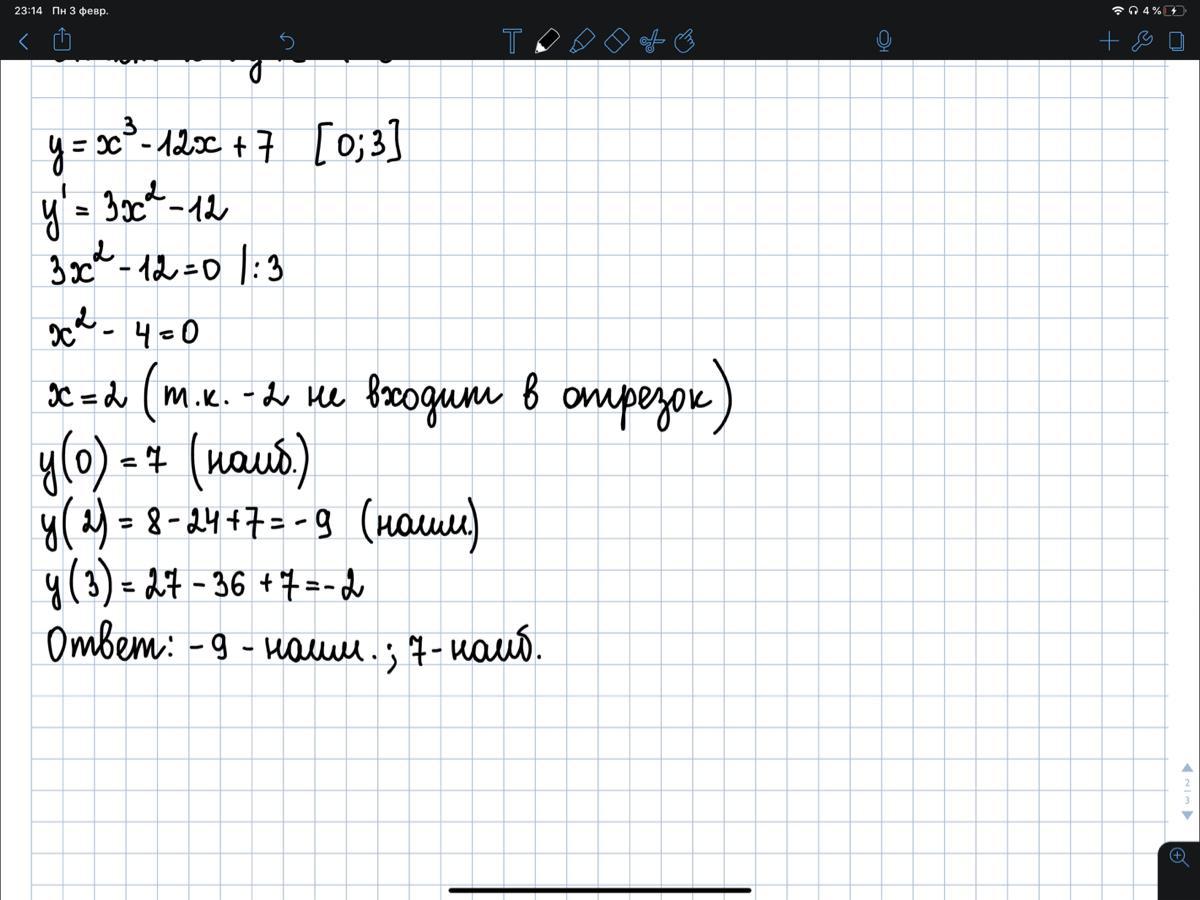 23:14 Пн 3 февр. 4 %
y = x³ - 12x + 7 [0;3]
y' = 3x² - 12
3x² - 12 = 0 |:3
x² - 4 = 0
x = 2 (т.к. -2 не входит в отрезок)
y(0) = 7 (наиб.)
y(2) = 8 - 24 + 7 = -9 (наим.)
y(3) = 27 - 36 + 7 = -2
Ответ: -9 - наим.; 7 - наиб.
2
3